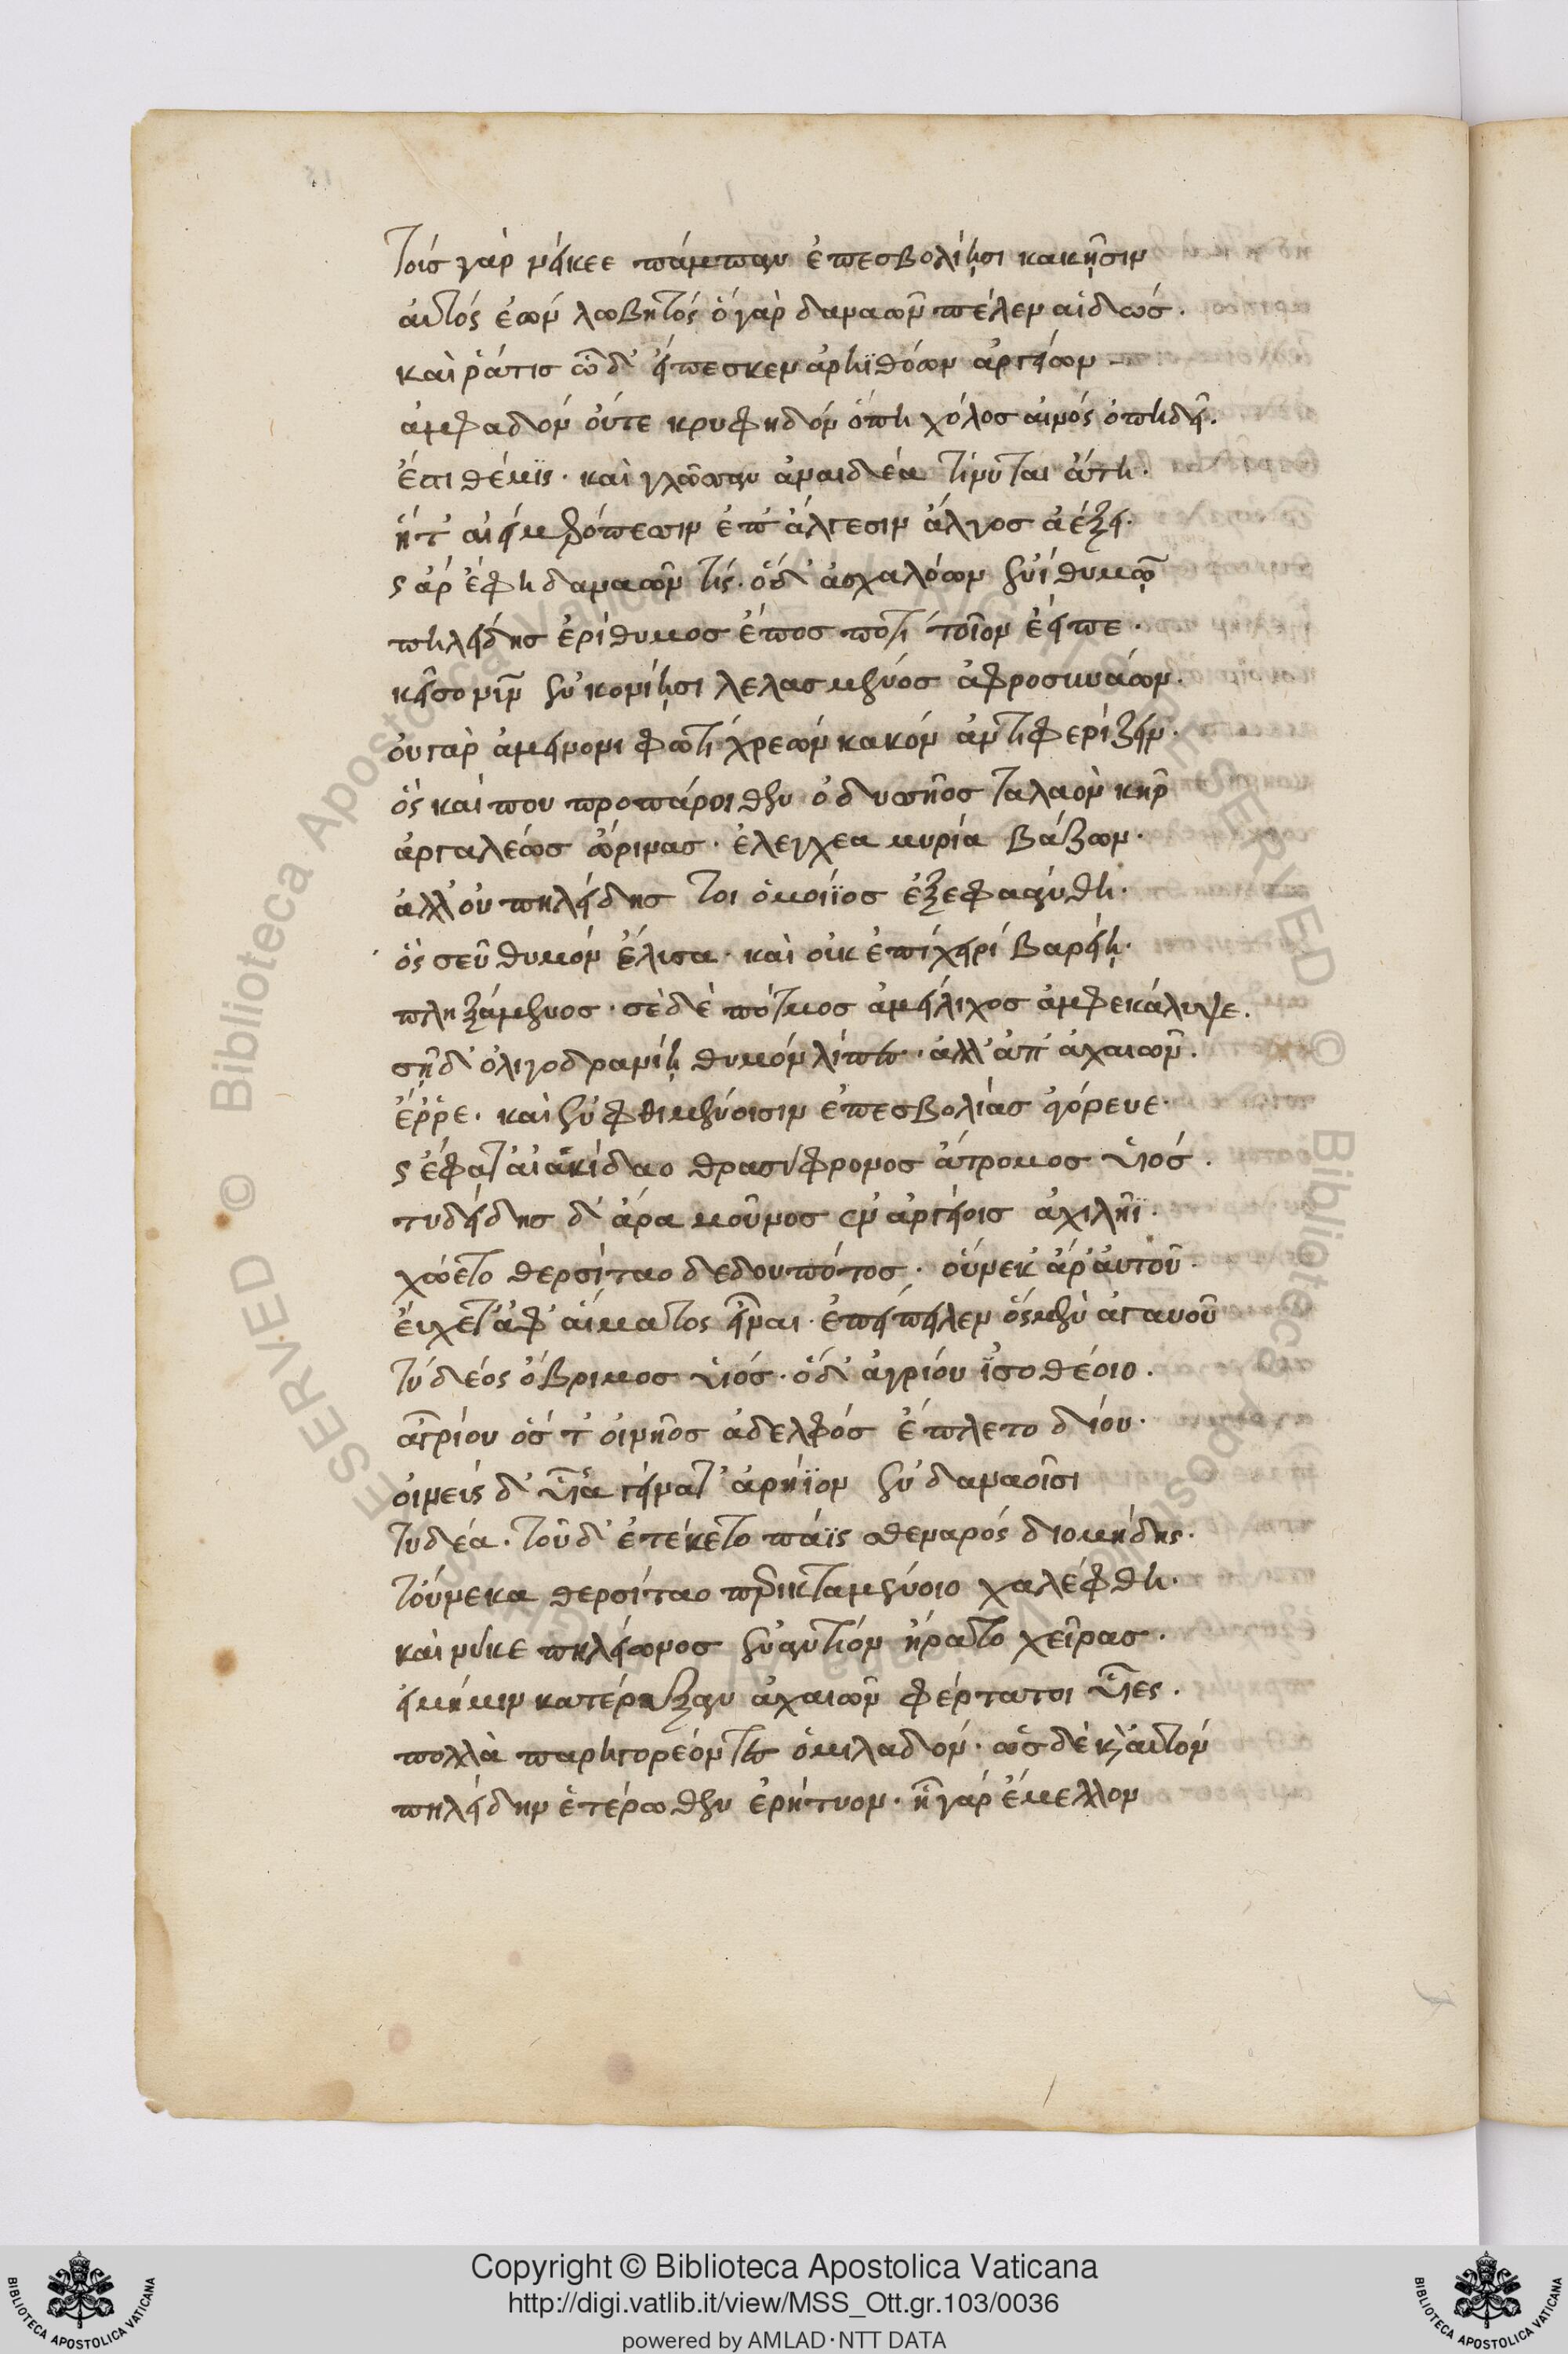 τοίσ γὰρ νείκεε πάμπαν ἐπεσβολίῃσι κακῇσιν
αὐτός ἐών λωβητός ὁγὰρ δαναῶν πέλεν αἰδώσ.
καὶ ῥάτισ ὧδ᾽ εἴπεσκεν ἀρηϊθόων ἀργείων
ἀμφαδόν οὔτε κρυφηδόν ὅπη χόλοσ αἰνόσ ὀπηδεῖ.
ἔστι θέμϊς. καὶ γλῶσσαν ἀναιδέα τίνυται ἄτη.
ἥτ᾽ αἰεί μερόπεσσιν ἐπ᾽ ἄλγεσιν ἄλγοσ ἀέξει.
ς ἄρ ἔφη δαναῶν τίς. ὁδ᾽ ἀσχαλόων ἐνί θυμῷ
πηλείδησ ἐρίθυμοσ ἔποσ ποτί τοῖον ἔειπε.
κεῖσονῦν ἐν κονίῃσι λελασμένοσ ἀφροσυνάων.
οὐγὰρ ἀμείνονι φωτί χρεών κακόν ἀντιφερίζειν.
ὅς καί που προπάροιθεν ὀδυσσῆοσ ταλαὸν κῆρ
ἀργαλέωσ ὤρινασ. ἐλεγχεα μυρία βάζων.
ἀλλ᾽ οὐ πηλείδησ τοι ὁμοίϊοσ ἐξεφαάνθη.
ὅς σεῦ θυμόν ἔλυσα. καὶ οὐκ ἐπί χειρί βαρείῃ.
πληξάμενοσ. σὲδὲ πότμοσ ἀμείλιχοσ ἀμφεκάλυψε.
σῇδ᾽ ὀλιγοδρανίῃ θυμόν λίπες. ἀλλ᾽ ἀπ᾽ ἀχαιῶν.
ἔρρε. καὶ ἐν φθιμένοισιν ἐπεσβολίασ ἀγόρευε.
ς ἔφατ᾽ αἰακίδαο θρασύφρονοσ ἄτρομοσ υἱόσ.
τυδείδησ δ᾽ ἄρα μοῦνοσ ἐν ἀργείοισ ἀχιλῆϊ.
χώετο θερσίταο δεδουπότοσ. οὕνεκ᾽ ἄρ᾽ αὐτοῦ.
εὔχετ᾽ ἀφ᾽ αἵματος εἶναι. ἐπεί πέλεν ὅςμὲν ἀγαυοῦ
τύδέος ὄβριμοσ υἱόσ. ὁδ᾽ ἀγρίου ἰσοθέοιο.
ἀγρίου ὅσ τ᾽ οἰνῆοσ ἀδελφόσ ἔπλετο δίου.
οἰνεύς δ᾽ υἷα γείνατ᾽ ἀρήϊον ἐν δαναοῖσι
τυδέα. τοῦδ᾽ ἐτέκετο πάϊς σθεναρός διομήδης.
τούνεκα θερσίταο περικταμένοιο χαλέφθη.
καὶ νύκε πηλείωνοσ ἐναντιόν ἤρατο χεῖρασ.
εἰμήμιν κατέρυξαν ἀχαιῶν φέρτατοι υἷες.
πολλὰ παρηγορέοντες ὁμιλαδόν. ὡσδὲκαὶ αὐτόν
πηλείδην ἑτέρωθεν ἐρήτυον. ἦγάρ ἔμελλον
Copyright © Biblioteca Apostolica Vaticana
http://digi.vatlib.it/view/MSS_Ott.gr.103/0036
powered by AMLAD·NTT DATA